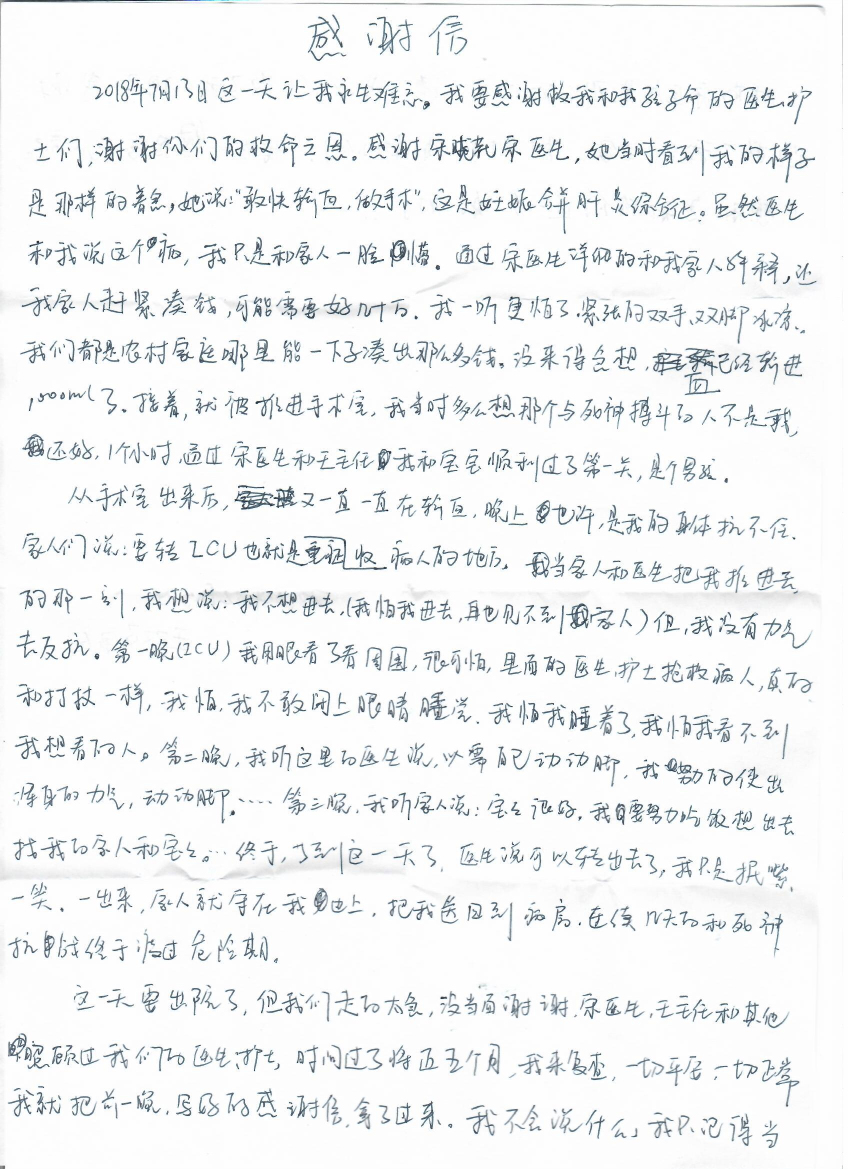 感谢信
2018年7月13日这一天让我永生难忘。我要感谢救我和我孩子命的医生、护
士们,谢谢你们的救命之恩。感谢宋晓乳宋医生,她当时看到我的样子
是那样的着急,她说:"敢快输血,做手术",这是妊娠合并肝炎综合征。虽然医生
和我说这个病,我只是和家人一脸懵。通过宋医生详细的和我家人解释,还
我家人赶紧凑钱,可能需要好几十万。我一听更怕了,紧张的双手、双脚冰凉。
我们都是农村家庭哪里能一下子凑出那么多钱。没来得急想,血已经输进
1,500ml了。接着,就被推进手术室,我当时多么想那个与死神搏斗的人不是我,
还好,1个小时,通过宋医生和王主任我和宝宝顺利过了第一关,是个男孩。
从手术室出来后,又一直一直在输血,晚上也许,是我的身体抗不住,
家人们说:要转ICU也就是重症收病人的地方。当家人和医生把我推进去
的那一刻,我想说:我不想进去,(我怕我进去,再也见不到家人)但,我没有力气
去反抗。第一晚(ICU)我用眼看了看周围,很可怕,里面的医生、护士抢救病人,真的
和打仗一样,我怕,我不敢闭上眼睛睡觉,我怕我睡着了,我怕我看不到
我想看的人。第二晚,我听这里的医生说,以需自己动动脚,我努力的使出
浑身的力气,动动脚。……第三晚,我听家人说:宝宝很好,我要努力吃饭想出去
找我的家人和宝宝。…终于,了到这一天了,医生说可以转出去了,我只是抿嘴
一笑。一出来,家人就守在我边上,把我送回到病房,连续几天的和死神
抗战终于渡过危险期。
这一天要出院了,但我们走的太急,没当面谢谢,宋医生,王主任和其他
照顾过我们的医生、护士,时间过了将近五个月,我来复查,一切平安,一切正常
我就把前一晚,写好的感谢信,拿了过来。我不会说什么,我只记得当